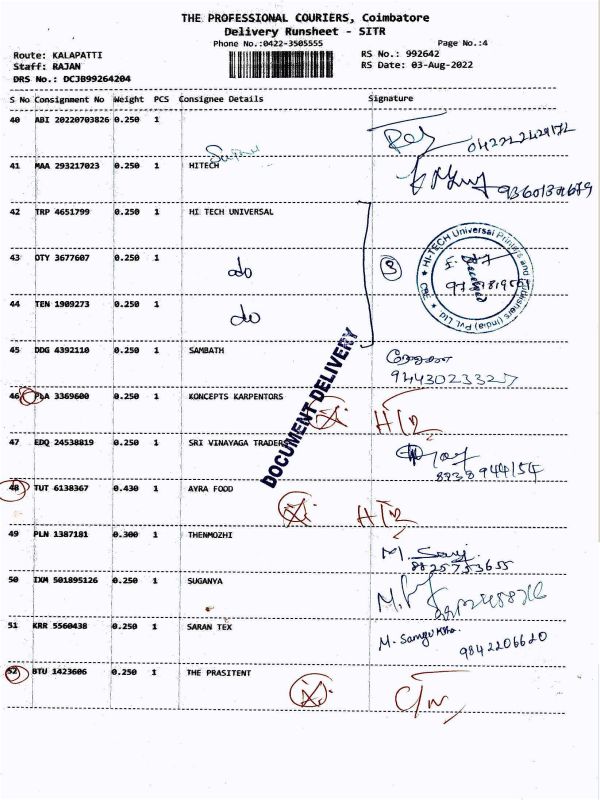 THE PROFESSIONAL COURIERS, Coimbatore
Delivery Runsheet - SITR
Phone No.:0422-3505555 Page No.:4
Route: KALAPATTI RS No.: 992642
Staff: RAJAN RS Date: 03-Aug-2022
DRS No.: DCJB99264204
S No Consignment No Weight PCS Consignee Details Signature
40 ABI 20220703826 0.250 1
41 MAA 293217023 0.250 1 HITECH
42 TRP 4651799 0.250 1 HI TECH UNIVERSAL
43 OTY 3677607 0.250 1 do
44 TEN 1909273 0.250 1 do
HI-TECH Universal Printers and Publishers (India) Pvt. Ltd. CBE
45 DDG 4392110 0.250 1 SAMBATH
9443023327
DOCUMENT DELIVERY
46 PLA 3369600 0.250 1 KONCEPTS KARPENTORS
47 EDQ 24538819 0.250 1 SRI VINAYAGA TRADERS
8838944154
48 TUT 6138367 0.430 1 AVRA FOOD
49 PLN 1387181 0.300 1 THENMOZHI
50 IXM 501895126 0.250 1 SUGANYA
51 KRR 5560438 0.250 1 SARAN TEX
9842206620
52 BTU 1423606 0.250 1 THE PRASITENT